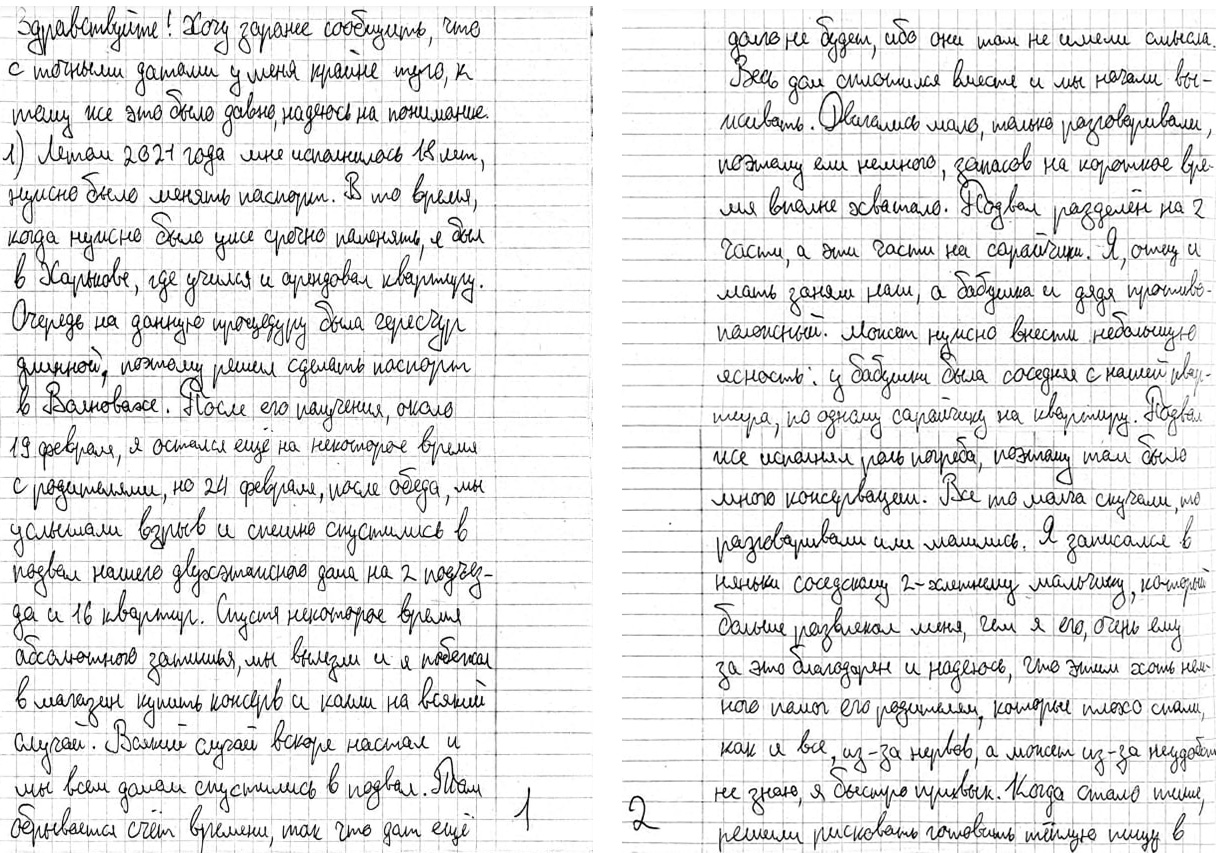 Здравствуйте! Хочу заранее сообщить, что
с точными датами у меня крайне туго, к
тому же это было давно, надеюсь на понимание.
1) Летом 2021 года мне исполнилось 18 лет,
нужно было менять паспорт. В то время,
когда нужно было уже срочно поменять, я был
в Харькове, где учился и арендовал квартиру.
Очередь на данную процедуру была чересчур
длинной, поэтому решил сделать паспорт
в Волновахе. После его получения, около
19 февраля, я остался ещё на некоторое время
с родителями, но 24 февраля, после обеда, мы
услышали взрыв и спешно спустились в
подвал нашего двухэтажного дома на 2 подъез-
да и 16 квартир. Спустя некоторое время
абсолютного затишья, мы вылезли и я побежал
в магазин купить консерв и каши на всякий
случай. Всякий случай вскоре настал и
мы всем домом спустились в подвал. Там
обрывается счёт времени, так что дат ещё
1
долго не будет, ибо они там не имели смысла.
Весь дом сплотился вместе и мы начали вы-
живать. Двигались мало, только разговаривали,
поэтому ели немного, запасов на короткое вре-
мя вполне хватало. Подвал разделён на 2
части, а эти части на сарайчики. Я, отец и
мать заняли наш, а бабушка и дядя противо-
положный. Может нужно внести небольшую
ясность: у бабушки была соседняя с нашей квар-
тира, по одному сарайчику на квартиру. Подвал
же исполнял роль погреба, поэтому там было
много консервации. Все то молча скучали, то
разговаривали или молились. Я записался в
няньки соседскому 2-хлетнему мальчику, который
больше развлекал меня, чем я его, очень ему
за это благодарен и надеюсь, что этим хоть нем-
ного помог его родителям, которые плохо спали,
как и все, из-за нервов, а может из-за неудобств
не знаю, я быстро привык. Когда стало тише,
решили рисковать готовить тёплую пищу в
2